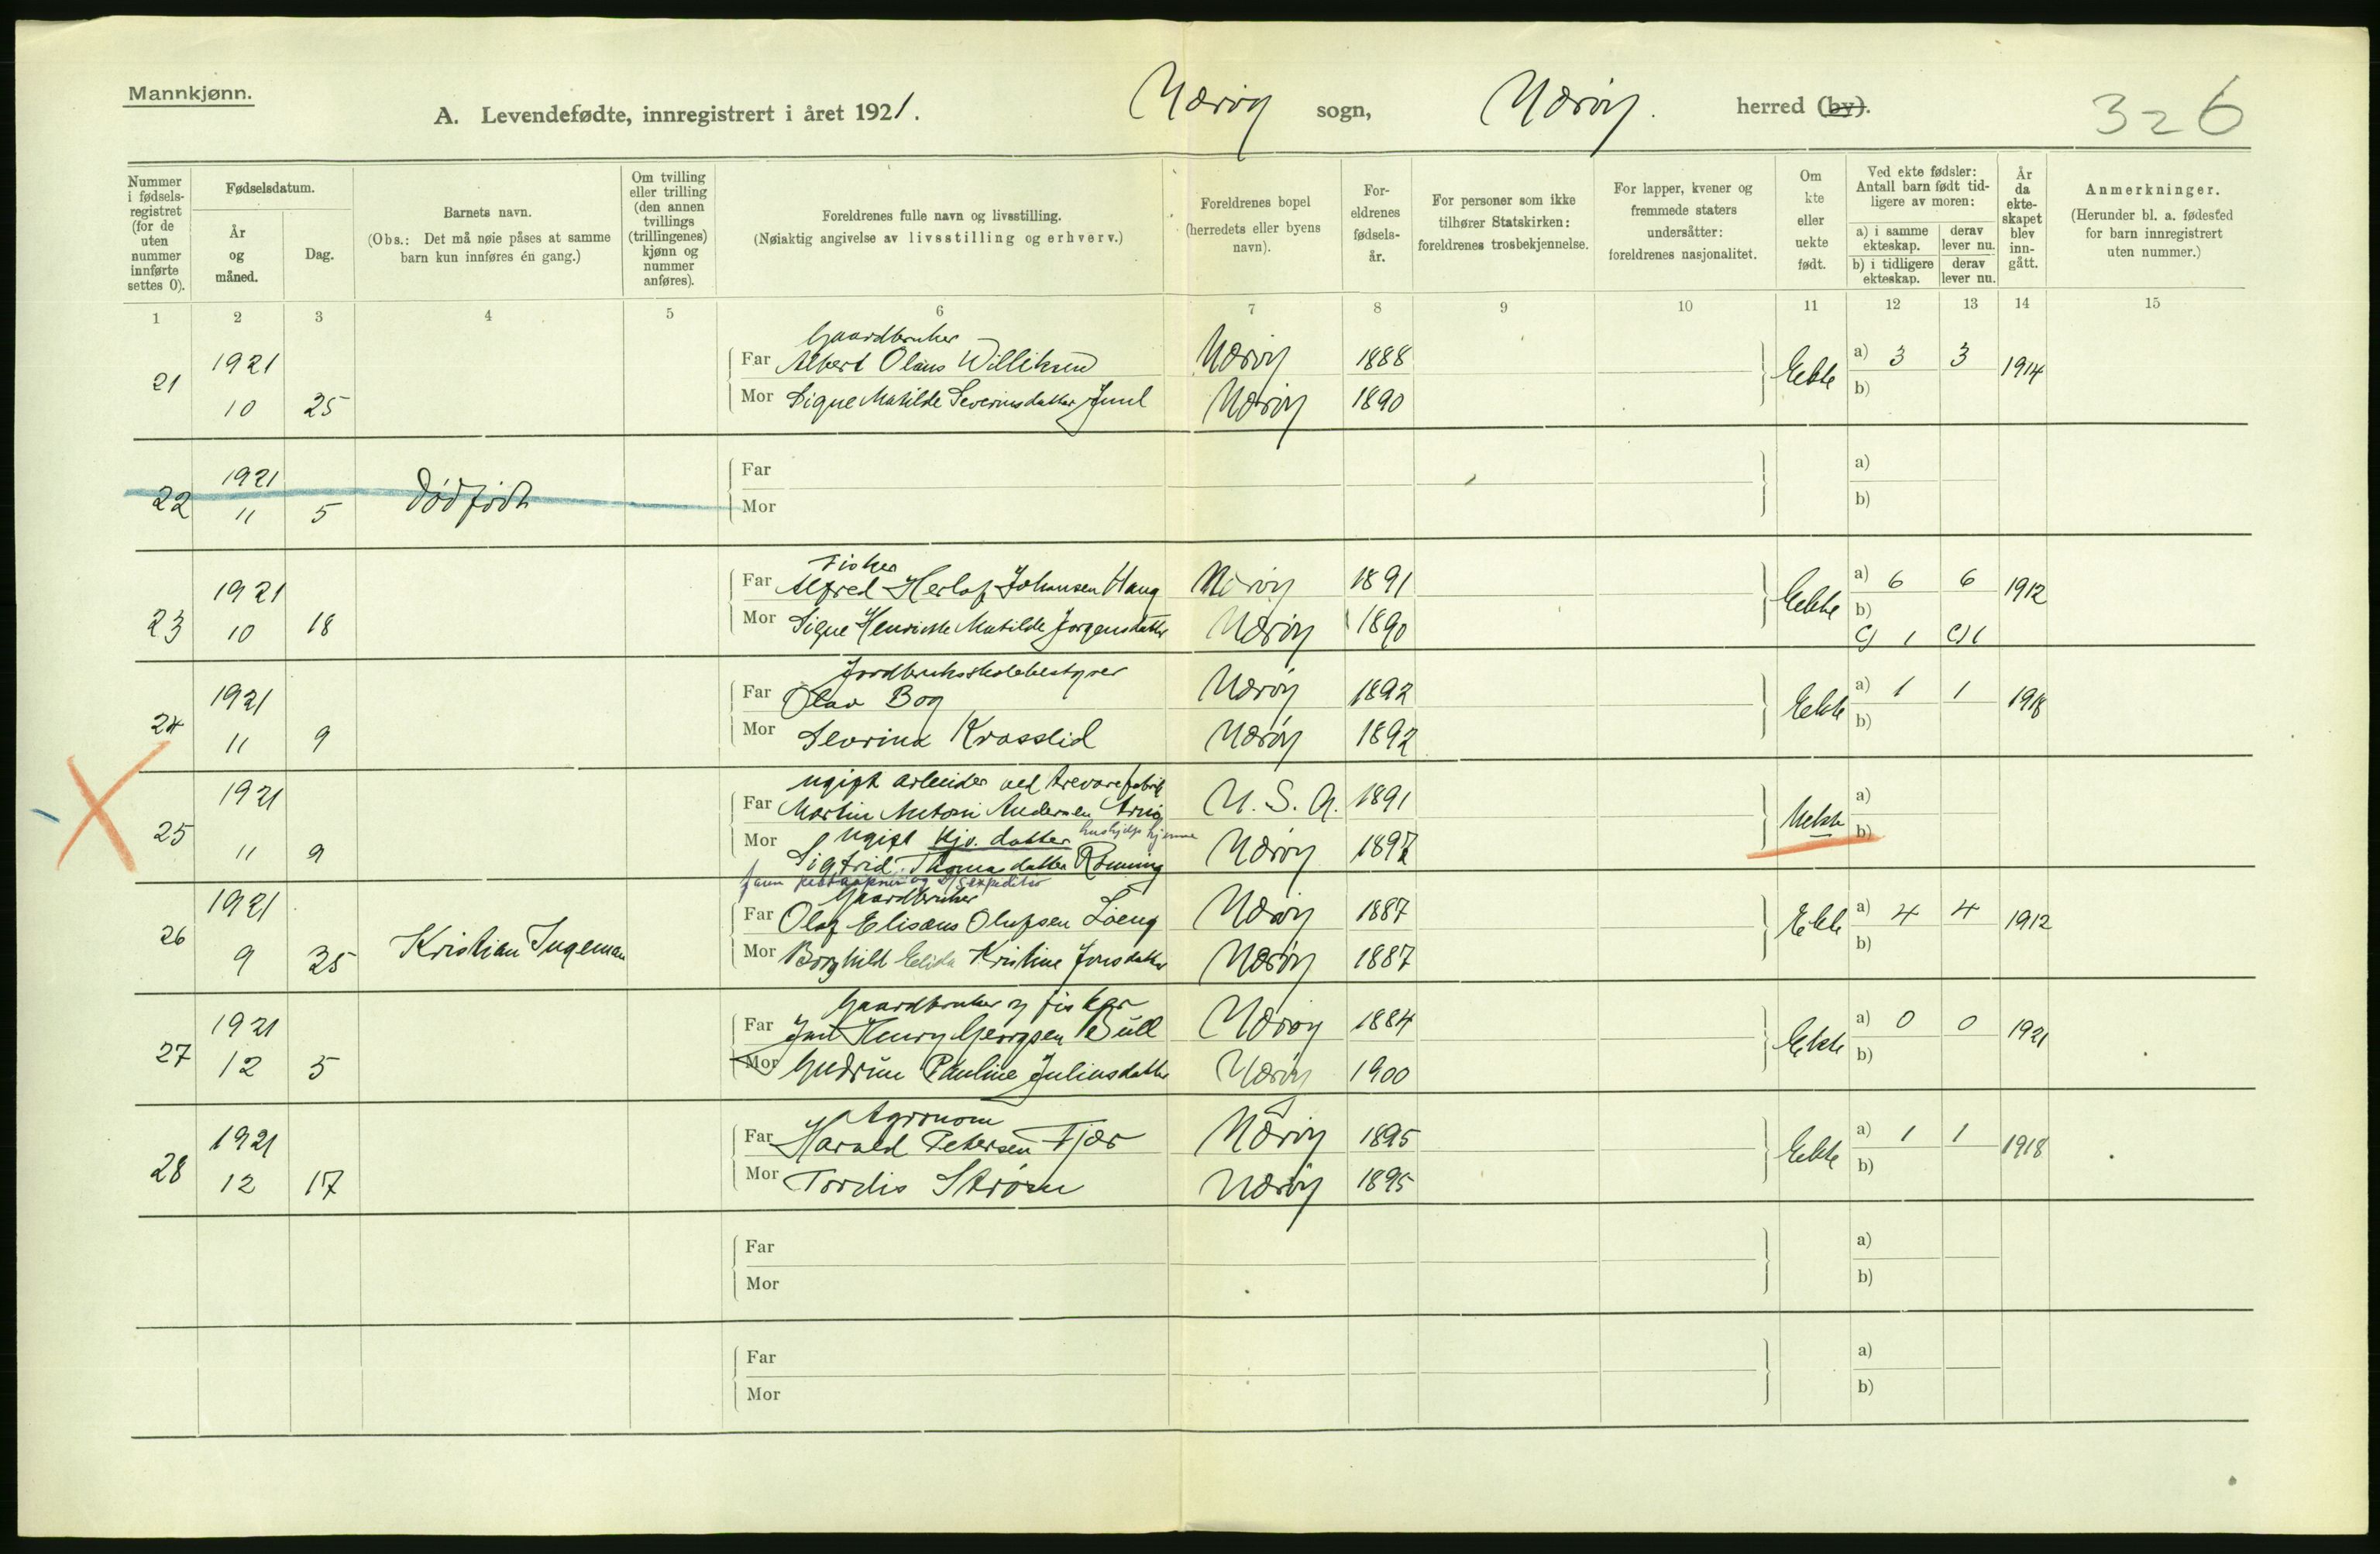 Mannkjønn.
A. Levendefødte, innregistrert i året 1921. Nærøy sogn, Nærøy. herred (by). 326
Nummer i fødsels-registret (for de uten nummer innførte settes 0).
Fødselsdatum.
År og måned.
Dag.
Barnets navn.
(Obs.: Det må nøie påses at samme barn kun innføres én gang.)
Om tvilling eller trilling (den annen tvillings (trillingenes) kjønn og nummer anføres).
Foreldrenes fulle navn og livsstilling.
(Nøiaktig angivelse av livsstilling og erhverv.)
Foreldrenes bopel (herredets eller byens navn).
For-eldrenes fødsels-år.
For personer som ikke tilhører Statskirken: foreldrenes trosbekjennelse.
For lapper, kvener og fremmede staters undersåtter: foreldrenes nasjonalitet.
Om kte eller uekte født.
Ved ekte fødsler: Antall barn født tid-ligere av moren:
a) i samme ekteskap. derav lever nu.
b) i tidligere ekteskap. derav lever nu.
År da ekte-skapet blev inn-gått.
Anmerkninger.
(Herunder bl. a. fødested for barn innregistrert uten nummer.)
1 2 3 4 5 6 7 8 9 10 11 12 13 14 15
Gaardbruker
21 1921 Far Albert Olaus Williksen Nærøy 1888 Ekte a) 3 3 1914
10 25 Mor Signe Matilde Severinsdatter Juul Nærøy 1890 b)
22 1921 Dødfødt Far a)
11 5 Mor b)
Fisker
23 1921 Far Alfred Herlof Johansen Haug Nærøy 1891 Ekte a) 6 6 1912
10 18 Mor Signe Henrikke Matilde Jørgensdatter Nærøy 1890 b)
c) 1 c) 1
Jordbruksskolebestyrer
24 1921 Far Olav Bog Nærøy 1892 Ekte a) 1 1 1918
11 9 Mor Severina Krosslid Nærøy 1892 b)
ugift arbeider ved trevarefabrik
25 1921 Far Martin Antoni Andersen U. S. A. 1891 Uekte a)
11 9 Mor ugift Gjv. datter hushjelp hjemme Nærøy 1897 b)
Sigfrid Thomasdatter Rønning
Gaardbruker
26 1921 Kristian Ingeman Far Olaf Elisæus Olufsen Løeng Nærøy 1887 Ekte a) 4 4 1912
9 25 Mor Borghild Elida Kristine Jonsdatter Nærøy 1887 b)
Gaardbruker og fisker
27 1921 Far Juul Henry Georgsen Bull Nærøy 1884 Ekte a) 0 0 1921
12 5 Mor Gudrun Pauline Juliusdatter Nærøy 1900 b)
Agronom
28 1921 Far Harald Petersen Fjær Nærøy 1895 Ekte a) 1 1 1918
12 17 Mor Tordis Strøm Nærøy 1895 b)
Far a)
Mor b)
Far a)
Mor b)